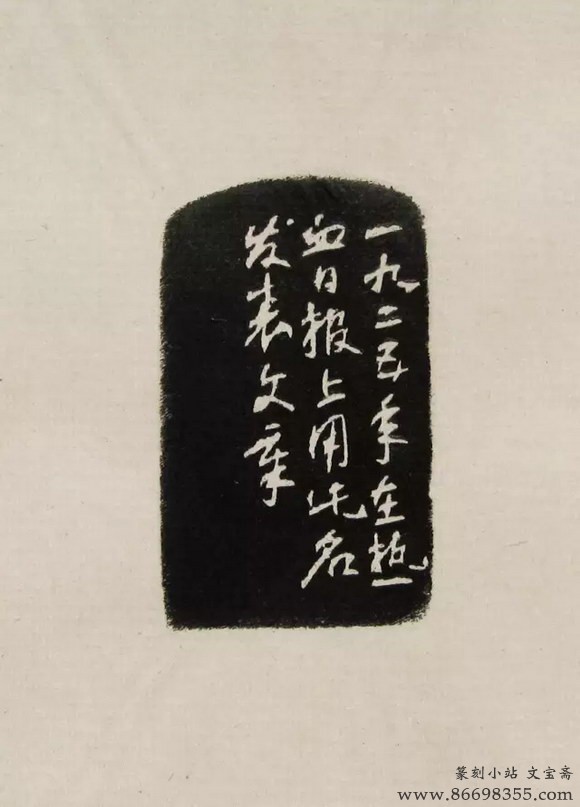 一九二五年在热
血日报上用此名
发表文章
篆刻小站 文宝斋
www.86698355.com